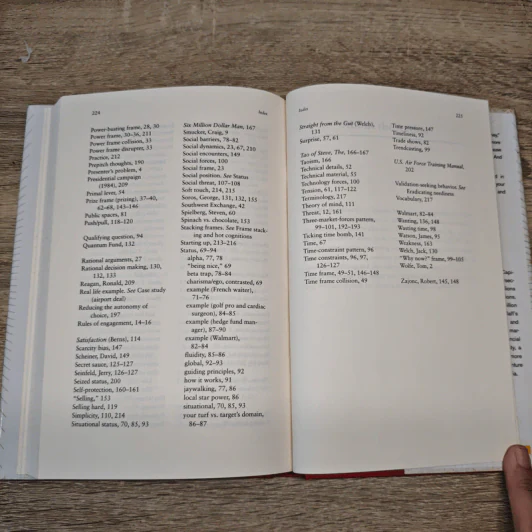 224
Index
Power-busting frame, 28, 30
Power frame, 30–36, 211
Power frame collision, 33
Power frame disrupter, 33
Practice, 212
Preptich thoughts, 190
Presenter's problem, 4
Presidential campaign
(1984), 209
Primal level, 54
Prize frame (prizing), 37–40,
62–68, 143–146
Public spaces, 81
Push/pull, 118–120
Qualifying question, 94
Quantum Fund, 132
Rational arguments, 27
Rational decision making, 130,
132, 133
Reagan, Ronald, 209
Real life example. See Case study
(airport deal)
Reducing the autonomy of
choice, 197
Rules of engagement, 14–16
Satisfaction (Berns), 114
Scarcity bias, 147
Scheiner, David, 149
Secret sauce, 125–127
Seinfeld, Jerry, 126–127
Seized status, 200
Self-protection, 160–161
"Selling," 153
Selling hard, 119
Simplicity, 110, 214
Situational status, 70, 85, 93
Six Million Dollar Man, 167
Smucker, Craig, 9
Social barriers, 78–82
Social dynamics, 23, 67, 210
Social encounters, 149
Social forces, 100
Social frame, 23
Social position. See Status
Social threat, 107–108
Soft touch, 214, 215
Soros, George, 131, 132, 135
Southwest Exchange, 42
Spielberg, Steven, 60
Spinach vs. chocolate, 133
Stacking frames. See Frame stack-
ing and hot cognitions
Starting up, 213–216
Status, 69–94
alpha, 77, 78
"being nice," 69
beta trap, 78–84
charisma/ego, contrasted, 69
example (French waiter),
71–76
example (golf pro and cardiac
surgeon), 84–85
example (hedge fund man-
ager), 87–90
example (Walmart),
82–84
fluidity, 85–86
global, 92–93
guiding principles, 92
how it works, 91
jaywalking, 77, 86
local star power, 86
situational, 70, 85, 93
your turf vs. target's domain,
86–87
Index
225
Straight from the Gut (Welch),
131
Surprise, 57, 61
Tao of Steve, The, 166–167
Taoism, 166
Technical details, 52
Technical material, 55
Technology forces, 100
Tension, 61, 117–122
Terminology, 217
Theory of mind, 111
Threat, 12, 161
Three-market-forces pattern,
99–101, 192–193
Ticking time bomb, 141
Time, 67
Time-constraint pattern, 96
Time constraints, 96, 97,
126–127
Time frame, 49–51, 146–148
Time frame collision, 49
Time pressure, 147
Timeliness, 92
Trade shows, 82
Trendcasting, 99
U.S. Air Force Training Manual,
202
Validation-seeking behavior. See
Eradicating neediness
Vocabulary, 217
Walmart, 82–84
Wanting, 156, 148
Wasting time, 98
Watson, James, 95
Weakness, 163
Welch, Jack, 130
"Why now?" frame, 99–103
Wolfe, Tom, 2
Zajonc, Robert, 145, 148